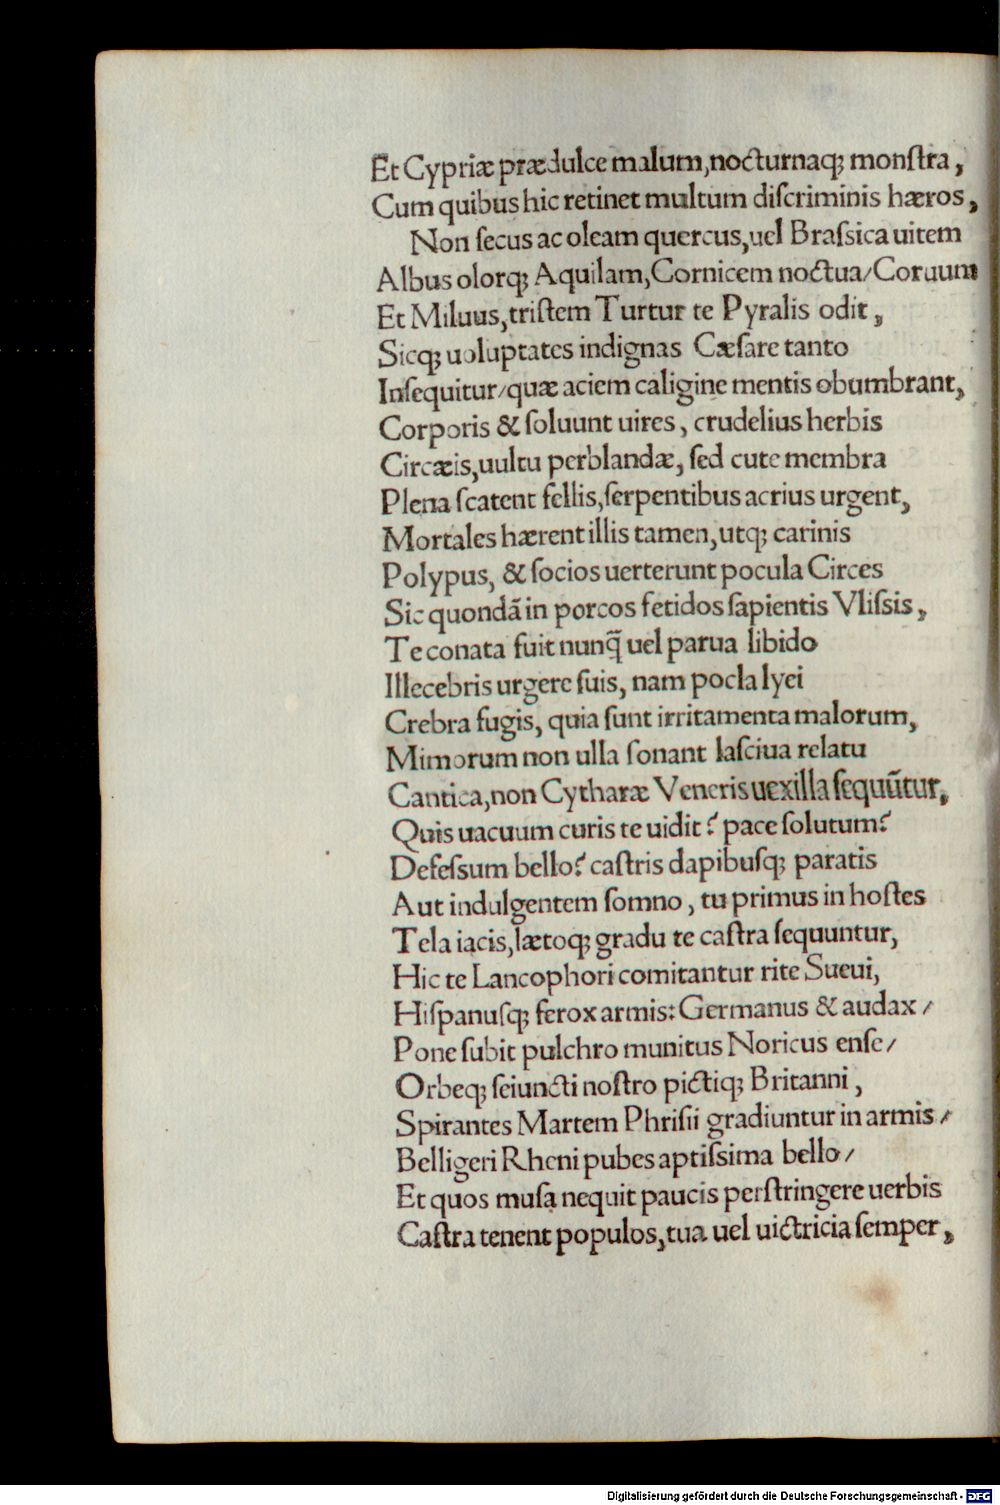 Et Cypriæ prædulce malum,nocturnaqꝫ monſtra,
Cum quibus hic retinet multum diſcriminis hæros,
Non ſecus ac oleam quercus,uel Braſsica uitem
Albus olorqꝫ Aquilam,Cornicem noctua/Coruum
Et Miluus,triſtem Turtur te Pyralis odit,
Sicqꝫ uoluptates indignas Cæſare tanto
Inſequitur/quæ aciem caligine mentis obumbrant,
Corporis & ſoluunt uires, crudelius herbis
Circæis,uultu perblandæ, ſed cute membra
Plena ſcatent fellis,ſerpentibus acrius urgent,
Mortales hærent illis tamen,utqꝫ carinis
Polypus, & ſocios uerterunt pocula Circes
Sic quondã in porcos fetidos ſapientis Vliſsis,
Te conata fuit nunq̃ uel parua libido
Illecebris urgere ſuis, nam pocla lyei
Crebra fugis, quia ſunt irritamenta malorum,
Mimorum non ulla ſonant laſciua relatu
Cantica,non Cytharæ Veneris uexilla ſequũtur,
Quis uacuum curis te uidit? pace ſolutum?
Defeſsum bello? caſtris dapibuſqꝫ paratis
Aut indulgentem ſomno, tu primus in hoſtes
Tela iacis,lætoqꝫ gradu te caſtra ſequuntur,
Hic te Lancophori comitantur rite Sueui,
Hiſpanuſqꝫ ferox armis: Germanus & audax/
Pone ſubit pulchro munitus Noricus enſe/
Orbeqꝫ ſeiuncti noſtro pictiqꝫ Britanni,
Spirantes Martem Phriſii gradiuntur in armis/
Belligeri Rheni pubes aptiſsima bello/
Et quos muſa nequit paucis perſtringere uerbis
Caſtra tenent populos,tua uel uictricia ſemper,
Digitalisierung gefördert durch die Deutsche Forschungsgemeinschaft - DFG